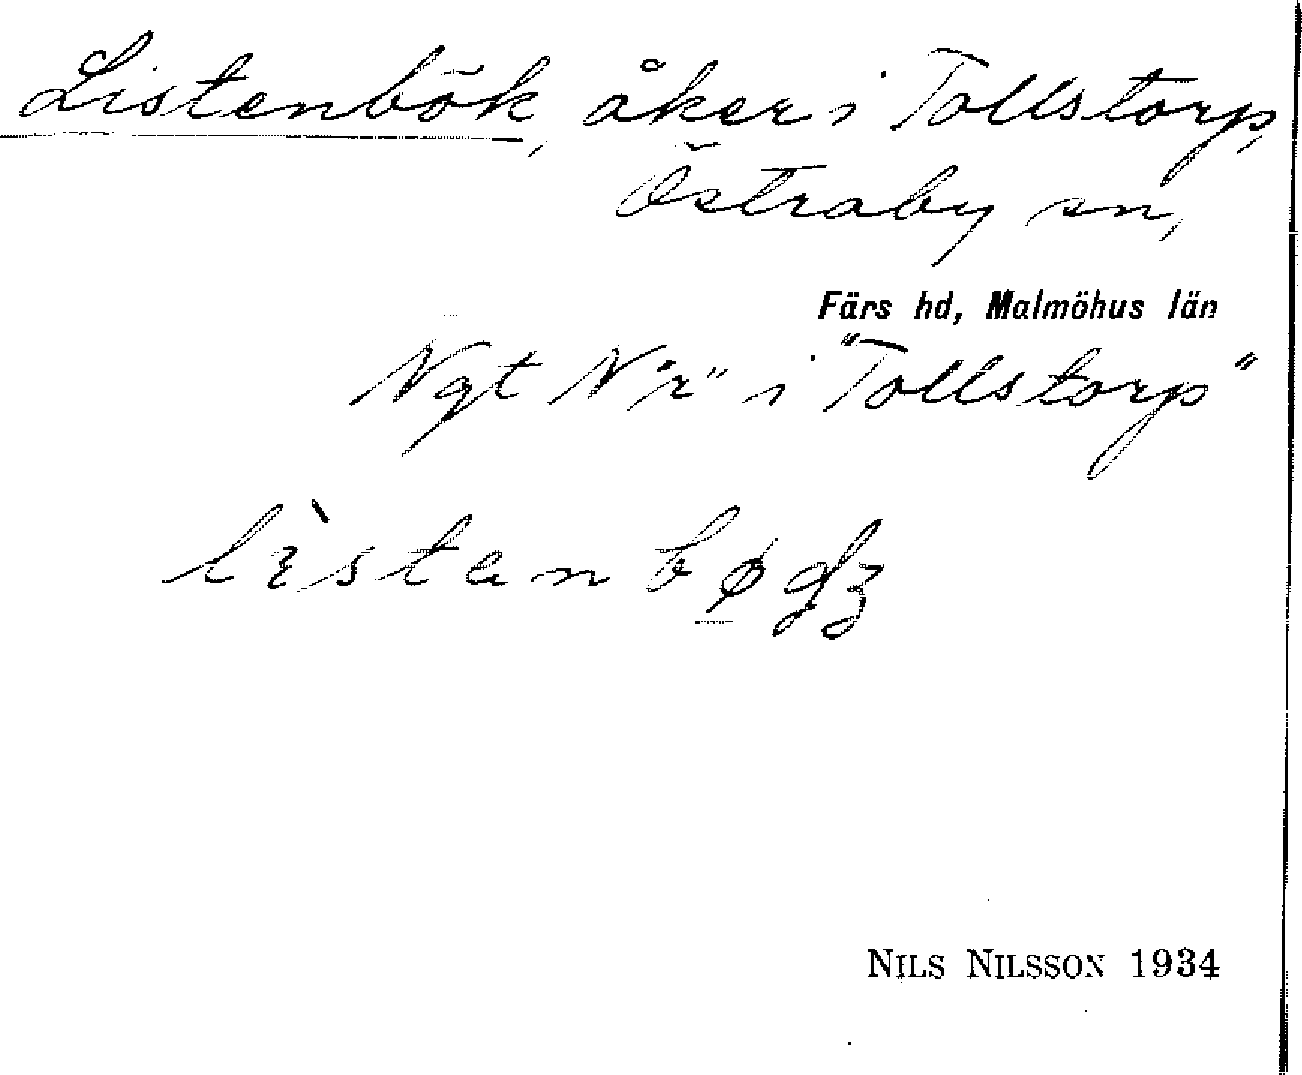 Listenbök, åker i Tollstorp,
Östraby sn,
Färs hd, Malmöhus län
Ngt N "r" i "Tollstorp"
NILS NILSSON 1934